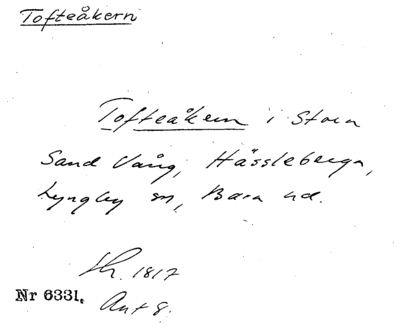 Tofteåkern
Tofteåkern i Stora
Sand Vång, Hässleberga,
Lyngby sn, Bara hd.
Sh. 1817
Nr 6331. Ant 8.